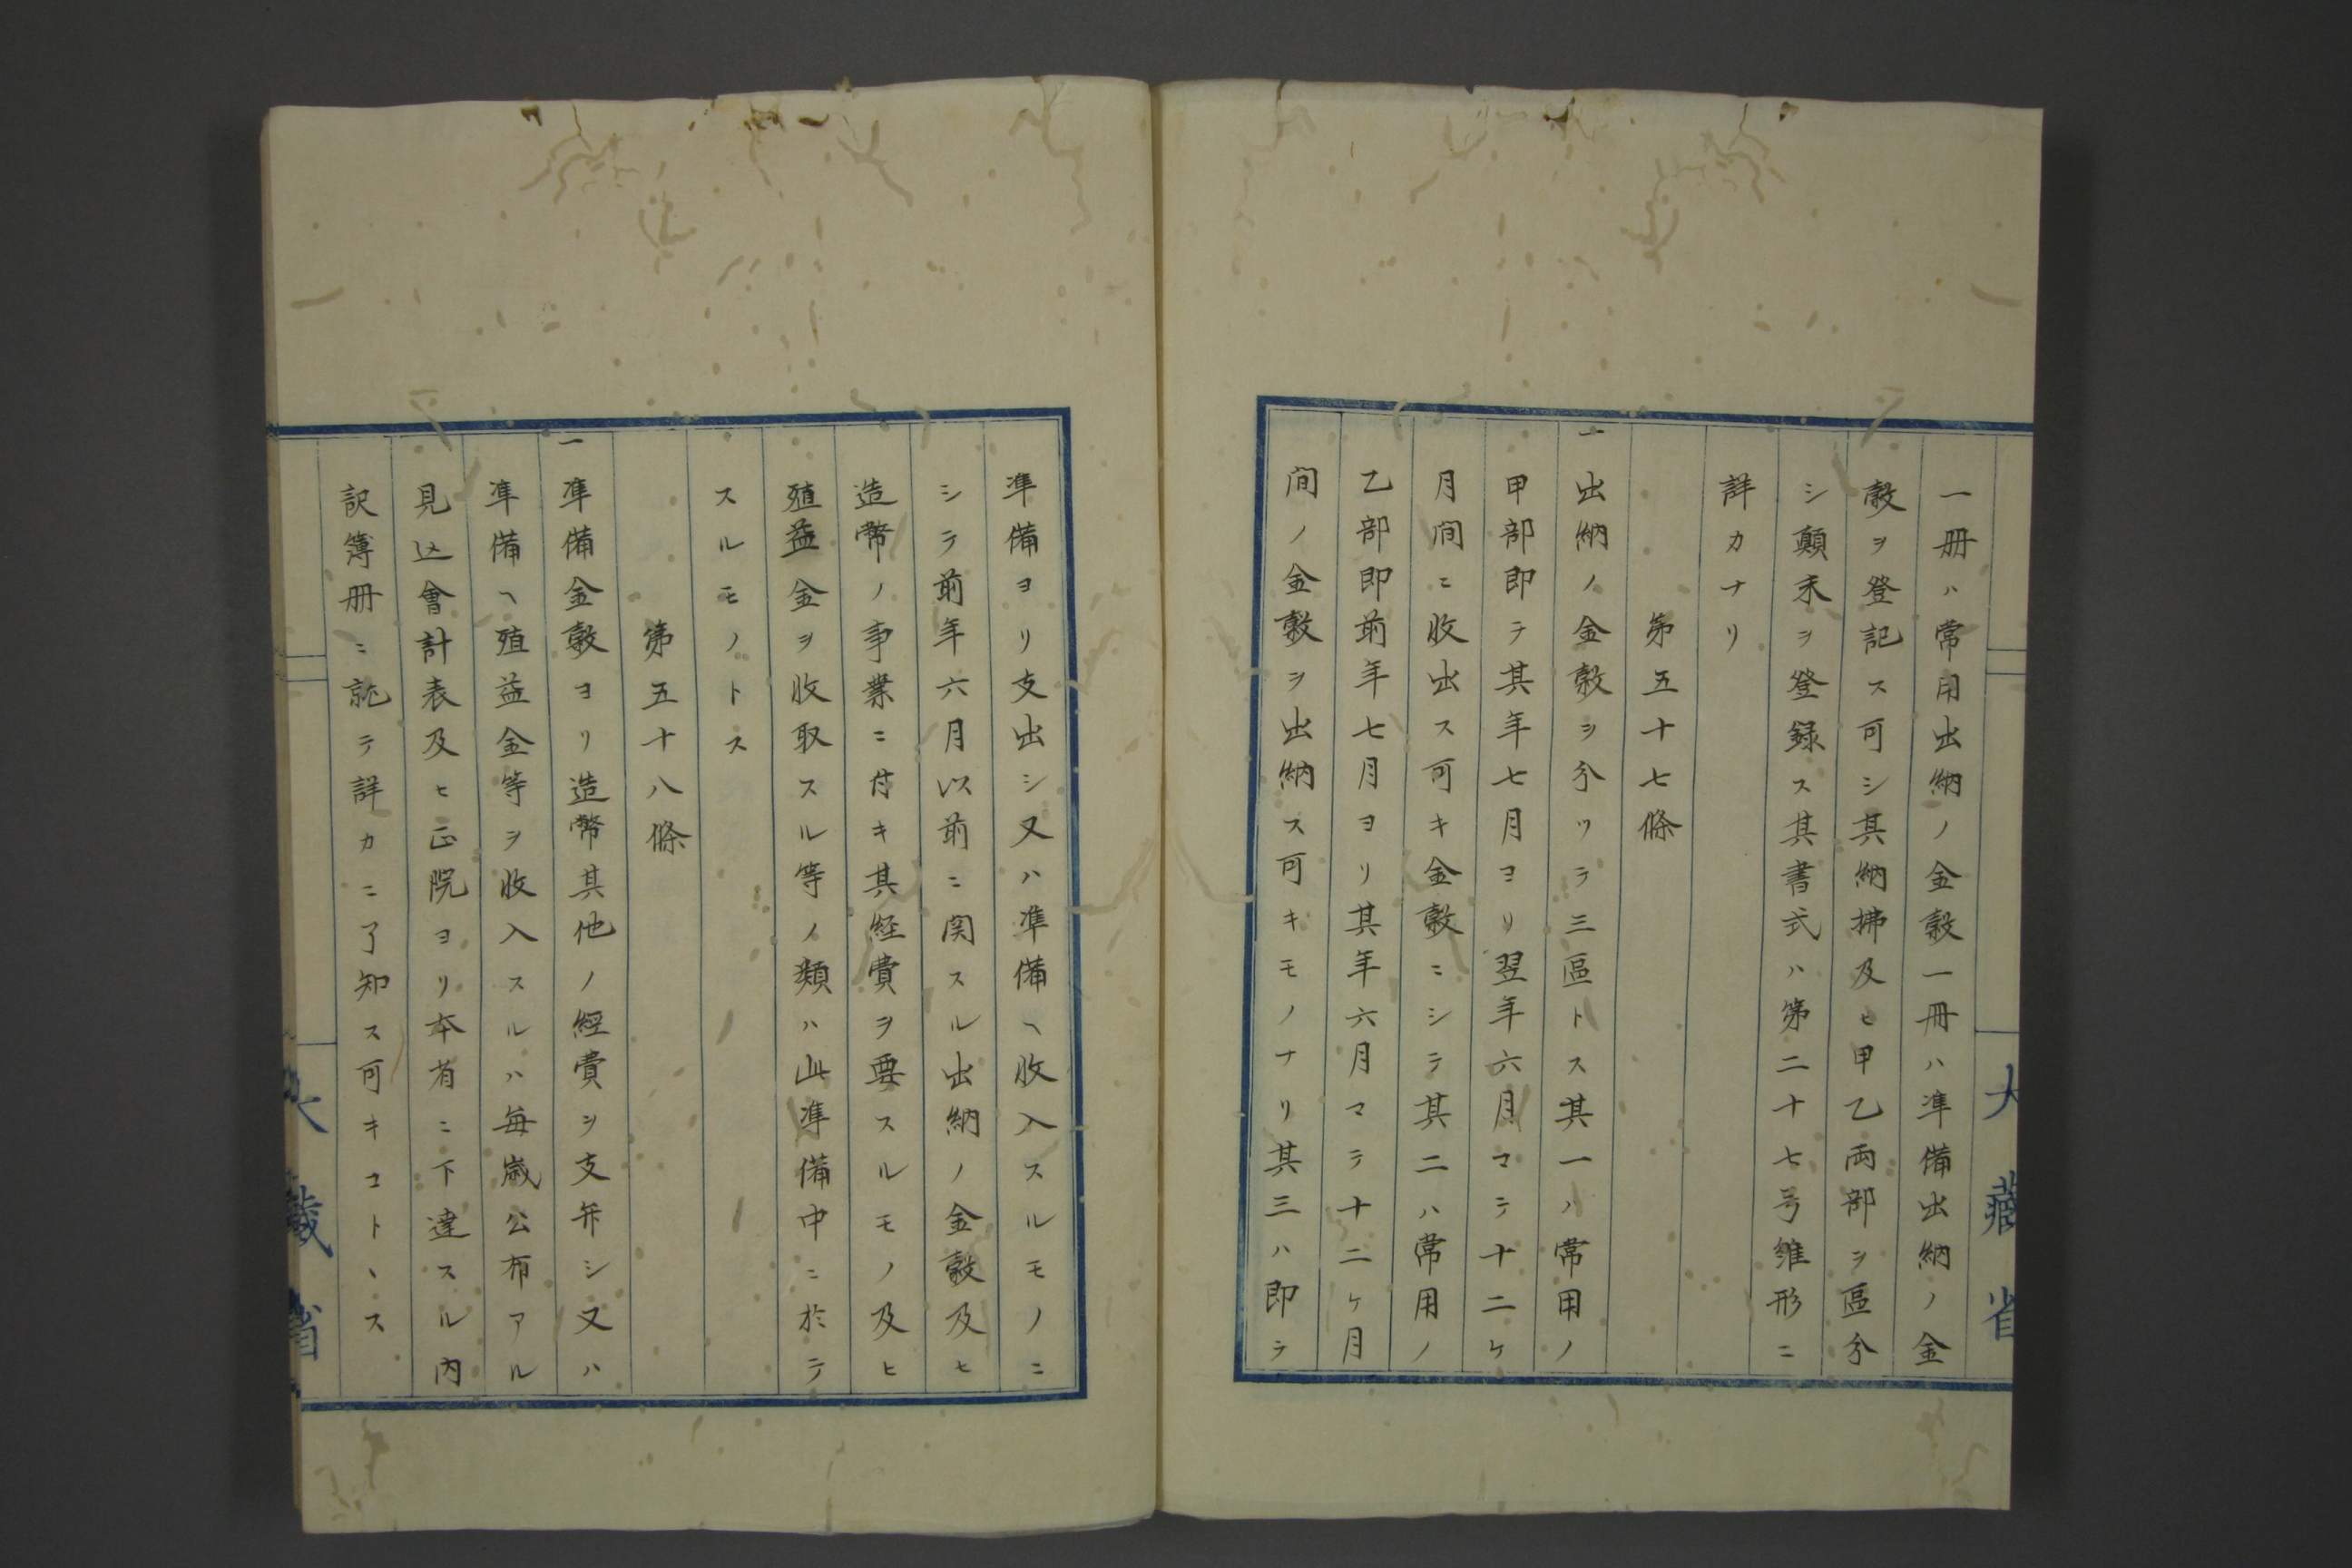 一冊ハ常用出納ノ金穀一冊ハ準備出納ノ金
穀ヲ登記ス可シ其納拂及ヒ甲乙両部ヲ區分
シ顛末ヲ登録ス其書式ハ第二十七号雛形ニ
詳カナリ
第五十七條
一出納ノ金穀ヲ分ツテ三區トス其一ハ常用ノ
甲部即チ其年七月ヨリ翌年六月マテ十二ケ
月間ニ收出ス可キ金穀ニシテ其二ハ常用ノ
乙部即前年七月ヨリ其年六月マテ十二ケ月
間ノ金穀ヲ出納ス可キモノナリ其三ハ即チ
準備ヨリ支出シ又ハ準備ヘ收入スルモノニ
シテ前年六月以前ニ関スル出納ノ金穀及ヒ
造幣ノ事業ニ付キ其経費ヲ要スルモノ及ヒ
殖益金ヲ收取スル等ノ類ハ此準備中ニ於テ
スルモノトス
第五十八條
一準備金穀ヨリ造幣其他ノ経費ヲ支弁シ又ハ
準備ヘ殖益金等ヲ收入スルハ毎歳公布アル
見込會計表及ヒ正院ヨリ本省ニ下達スル内
訳簿冊ニ就テ詳カニ了知ス可キコトヽス
大藏省
大藏省